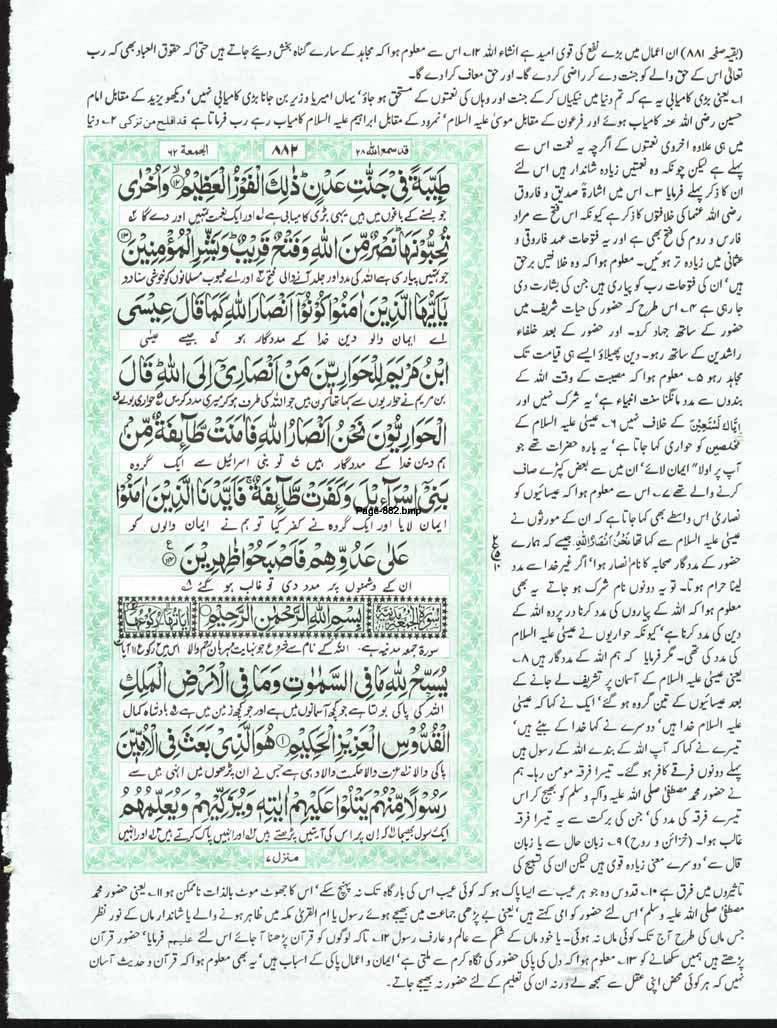 (بقیہ صفحہ ۸۸۱) ان اعمال میں بڑے نفع کی قوی امید ہے انشاء اللہ ۱۲؎ اس سے معلوم ہوا کہ مجاہد کے سارے گناہ بخش دیئے جاتے ہیں حتیٰ کہ حقوق العباد بھی کہ رب
تعالیٰ اس کے حق والے کو جنت دے کر راضی کر دے گا۔ اور حق معاف کرا دے گا۔
۱؎ یعنی بڑی کامیابی یہ ہے کہ تم دنیا میں نیکیاں کر کے جنت اور وہاں کی نعمتوں کے مستحق ہو جاؤ' یہاں امیر یا وزیر بن جانا بڑی کامیابی نہیں' دیکھو یزید کے مقابل امام
حسین رضی اللہ عنہ کامیاب ہوئے اور فرعون کے مقابل موسیٰ علیہ السلام' نمرود کے مقابل ابراہیم علیہ السلام کامیاب رہے رب فرماتا ہے قد افلح من تزکی ۲؎ دنیا
میں ہی علاوہ اخروی نعمتوں کے اگرچہ یہ نعمت اس سے
پہلے ہے لیکن چونکہ وہ نعمتیں زیادہ شاندار ہیں اس لئے
ان کا ذکر پہلے فرمایا ۳؎ اس میں اشارۃً صدیق و فاروق
رضی اللہ عنہما کی خلافتوں کا ذکر ہے کیونکہ اس فتح سے مراد
فارس و روم کی فتح بھی ہے اور یہ فتوحات عہد فاروقی و
عثمانی میں زیادہ تر ہوئیں۔ معلوم ہوا کہ وہ خلافتیں برحق
ہیں' ان کی فتوحات رب کو پیاری ہیں جن کی بشارت دی
جا رہی ہے ۴؎ اس طرح کہ حضور کی حیات شریف میں
حضور کے ساتھ جہاد کرو۔ اور حضور کے بعد خلفاء
راشدین کے ساتھ رہو۔ دین پھیلاؤ ایسے ہی قیامت تک
مجاہد رہو ۵؎ معلوم ہوا کہ مصیبت کے وقت اللہ کے
بندوں سے مدد مانگنا سنت انبیاء ہے' یہ شرک نہیں اور
اِيَّاكَ نَسْتَعِيْنُ کے خلاف نہیں ۶؎ عیسیٰ علیہ السلام کے
مخلصین کو حواری کہا جاتا ہے' یہ بارہ حضرات تھے جو
آپ پر اولاً ایمان لائے' ان میں سے بعض کپڑے صاف
کرنے والے تھے ۷؎ اس سے معلوم ہوا کہ عیسائیوں کو
نصاریٰ اس واسطے بھی کہا جاتا ہے کہ ان کے مورثوں نے
عیسیٰ علیہ السلام سے کہا تھا نَحْنُ اَنْصَارُ اللّٰهِ جیسے کہ ہمارے
حضور کے مددگار صحابہ کا نام انصار ہوا' اگر غیر خدا سے مدد
لینا حرام ہوتا۔ تو یہ دونوں نام شرک ہو جاتے یہ بھی
معلوم ہوا کہ اللہ کے پیاروں کی مدد کرنا در پردہ اللہ کے
دین کی مدد کرنا ہے' کیونکہ حواریوں نے عیسیٰ علیہ السلام
کی مدد کی تھی۔ مگر فرمایا کہ ہم اللہ کے مددگار ہیں ۸؎
یعنی عیسیٰ علیہ السلام کے آسمان پر تشریف لے جانے کے
بعد عیسائیوں کے تین گروہ ہو گئے' ایک نے کہا کہ عیسیٰ
علیہ السلام خدا ہیں' دوسرے نے کہا خدا کے بیٹے ہیں'
تیسرے نے کہا کہ آپ اللہ کے بندے اللہ کے رسول ہیں
پہلے دونوں فرقے کافر ہو گئے۔ تیسرا فرقہ مومن رہا۔ ہم
نے حضور محمد مصطفیٰ صلی اللہ علیہ وآلہ وسلم کو بھیج کر اس
تیسرے فرقہ کی مدد کی' جن کی برکت سے یہ تیسرا فرقہ
غالب ہوا۔ (خزائن و روح) ۹؎ زبان حال سے یا زبان
قال سے' دوسرے معنی زیادہ قوی ہیں لیکن ان کی تسبیح کی
قد سمع اللہ ۲۸
۸۸۲
الجمعة ۶۲
طَيِّبَةً فِيْ جَنّٰتِ عَدْنٍ ذٰلِكَ الْفَوْزُ الْعَظِيْمُ ۱۲ وَاُخْرٰى
جو بسنے کے باغوں میں ہیں یہی بڑی کامیابی ہے اور ایک نعمت تمہیں اور دے گا
تُحِبُّوْنَهَا نَصْرٌ مِّنَ اللّٰهِ وَفَتْحٌ قَرِيْبٌ وَبَشِّرِ الْمُؤْمِنِيْنَ ۱۳
جو تمہیں پیاری ہے اللہ کی مدد اور جلد آنے والی فتح اور اے محبوب مسلمانوں کو خوشی سنا دو
يٰٓاَيُّهَا الَّذِيْنَ اٰمَنُوْا كُوْنُوْٓا اَنْصَارَ اللّٰهِ كَمَا قَالَ عِيْسَى
اے ایمان والو دین خدا کے مددگار ہو جیسے عیسیٰ
ابْنُ مَرْيَمَ لِلْحَوَارِيّٖنَ مَنْ اَنْصَارِيْٓ اِلَى اللّٰهِ قَالَ
بن مریم نے حواریوں سے کہا تھا کون ہیں جو اللہ کی طرف ہو کر میری مدد کریں حواری بولے
الْحَوَارِيُّوْنَ نَحْنُ اَنْصَارُ اللّٰهِ فَاٰمَنَتْ طَّآئِفَةٌ مِّنْ
ہم دین خدا کے مددگار ہیں تو بنی اسرائیل سے ایک گروہ
بَنِيْٓ اِسْرَآءِيْلَ وَكَفَرَتْ طَّآئِفَةٌ فَاَيَّدْنَا الَّذِيْنَ اٰمَنُوْا
ایمان لایا اور ایک گروہ نے کفر کیا تو ہم نے ایمان والوں کو
Page-882.bmp
عَلٰى عَدُوِّهِمْ فَاَصْبَحُوْا ظٰهِرِيْنَ ۱۴
ان کے دشمنوں پر مدد دی تو غالب ہو گئے
بِسْمِ اللّٰهِ الرَّحْمٰنِ الرَّحِيْمِ
سورۃ جمعہ مدنیہ ہے۔ اللہ کے نام سے شروع جو نہایت مہربان رحم والا
يُسَبِّحُ لِلّٰهِ مَا فِي السَّمٰوٰتِ وَمَا فِي الْاَرْضِ الْمَلِكِ
اللہ کی پاکی بولتا ہے جو کچھ آسمانوں میں ہے اور جو کچھ زمین میں ہے بادشاہ کمال
الْقُدُّوْسِ الْعَزِيْزِ الْحَكِيْمِ ۱ هُوَ الَّذِيْ بَعَثَ فِي الْاُمِّيّٖنَ
پاکی والا عزت والا حکمت والا وہی ہے جس نے ان پڑھوں میں انہی میں سے
رَسُوْلًا مِّنْهُمْ يَتْلُوْا عَلَيْهِمْ اٰيٰتِهٖ وَيُزَكِّيْهِمْ وَيُعَلِّمُهُمُ
ایک رسول بھیجا کہ ان پر اس کی آیتیں پڑھتے ہیں اور انہیں پاک کرتے ہیں اور انہیں
منزل ۷
تاثیروں میں فرق ہے ۱۰؎ قدوس وہ جو ہر عیب سے ایسا پاک ہو کہ کوئی عیب اس کی بارگاہ تک نہ پہنچ سکے' اس کا جھوٹ موٹ بالذات ناممکن ہو ۱۱؎ یعنی حضور محمد
مصطفیٰ صلی اللہ علیہ وسلم' اس لئے حضور کو امی کہتے ہیں' یعنی بے پڑھی جماعت میں بھیجے ہوئے رسول یا ام القریٰ مکہ میں ظاہر ہونے والے یا شاندار ماں کے نور نظر
جس ماں کی طرح آج تک کوئی ماں نہ ہوئی۔ یا خود ماں کے شکم سے عالم و عارف رسول ۱۲؎ تاکہ لوگوں کو قرآن پڑھنا آ جائے اس لئے علیہم فرمایا' حضور قرآن
پڑھتے ہیں ہمیں سکھانے کو ۱۳؎ معلوم ہوا کہ دل کی پاکی حضور کی نگاہ کرم سے ملتی ہے' ایمان و اعمال پاکی کے اسباب ہیں' یہ بھی معلوم ہوا کہ قرآن و حدیث آسان
نہیں کہ ہر کوئی محض اپنی عقل سے سمجھ لے ورنہ ان کی تعلیم کے لئے حضور نہ بھیجے جاتے۔